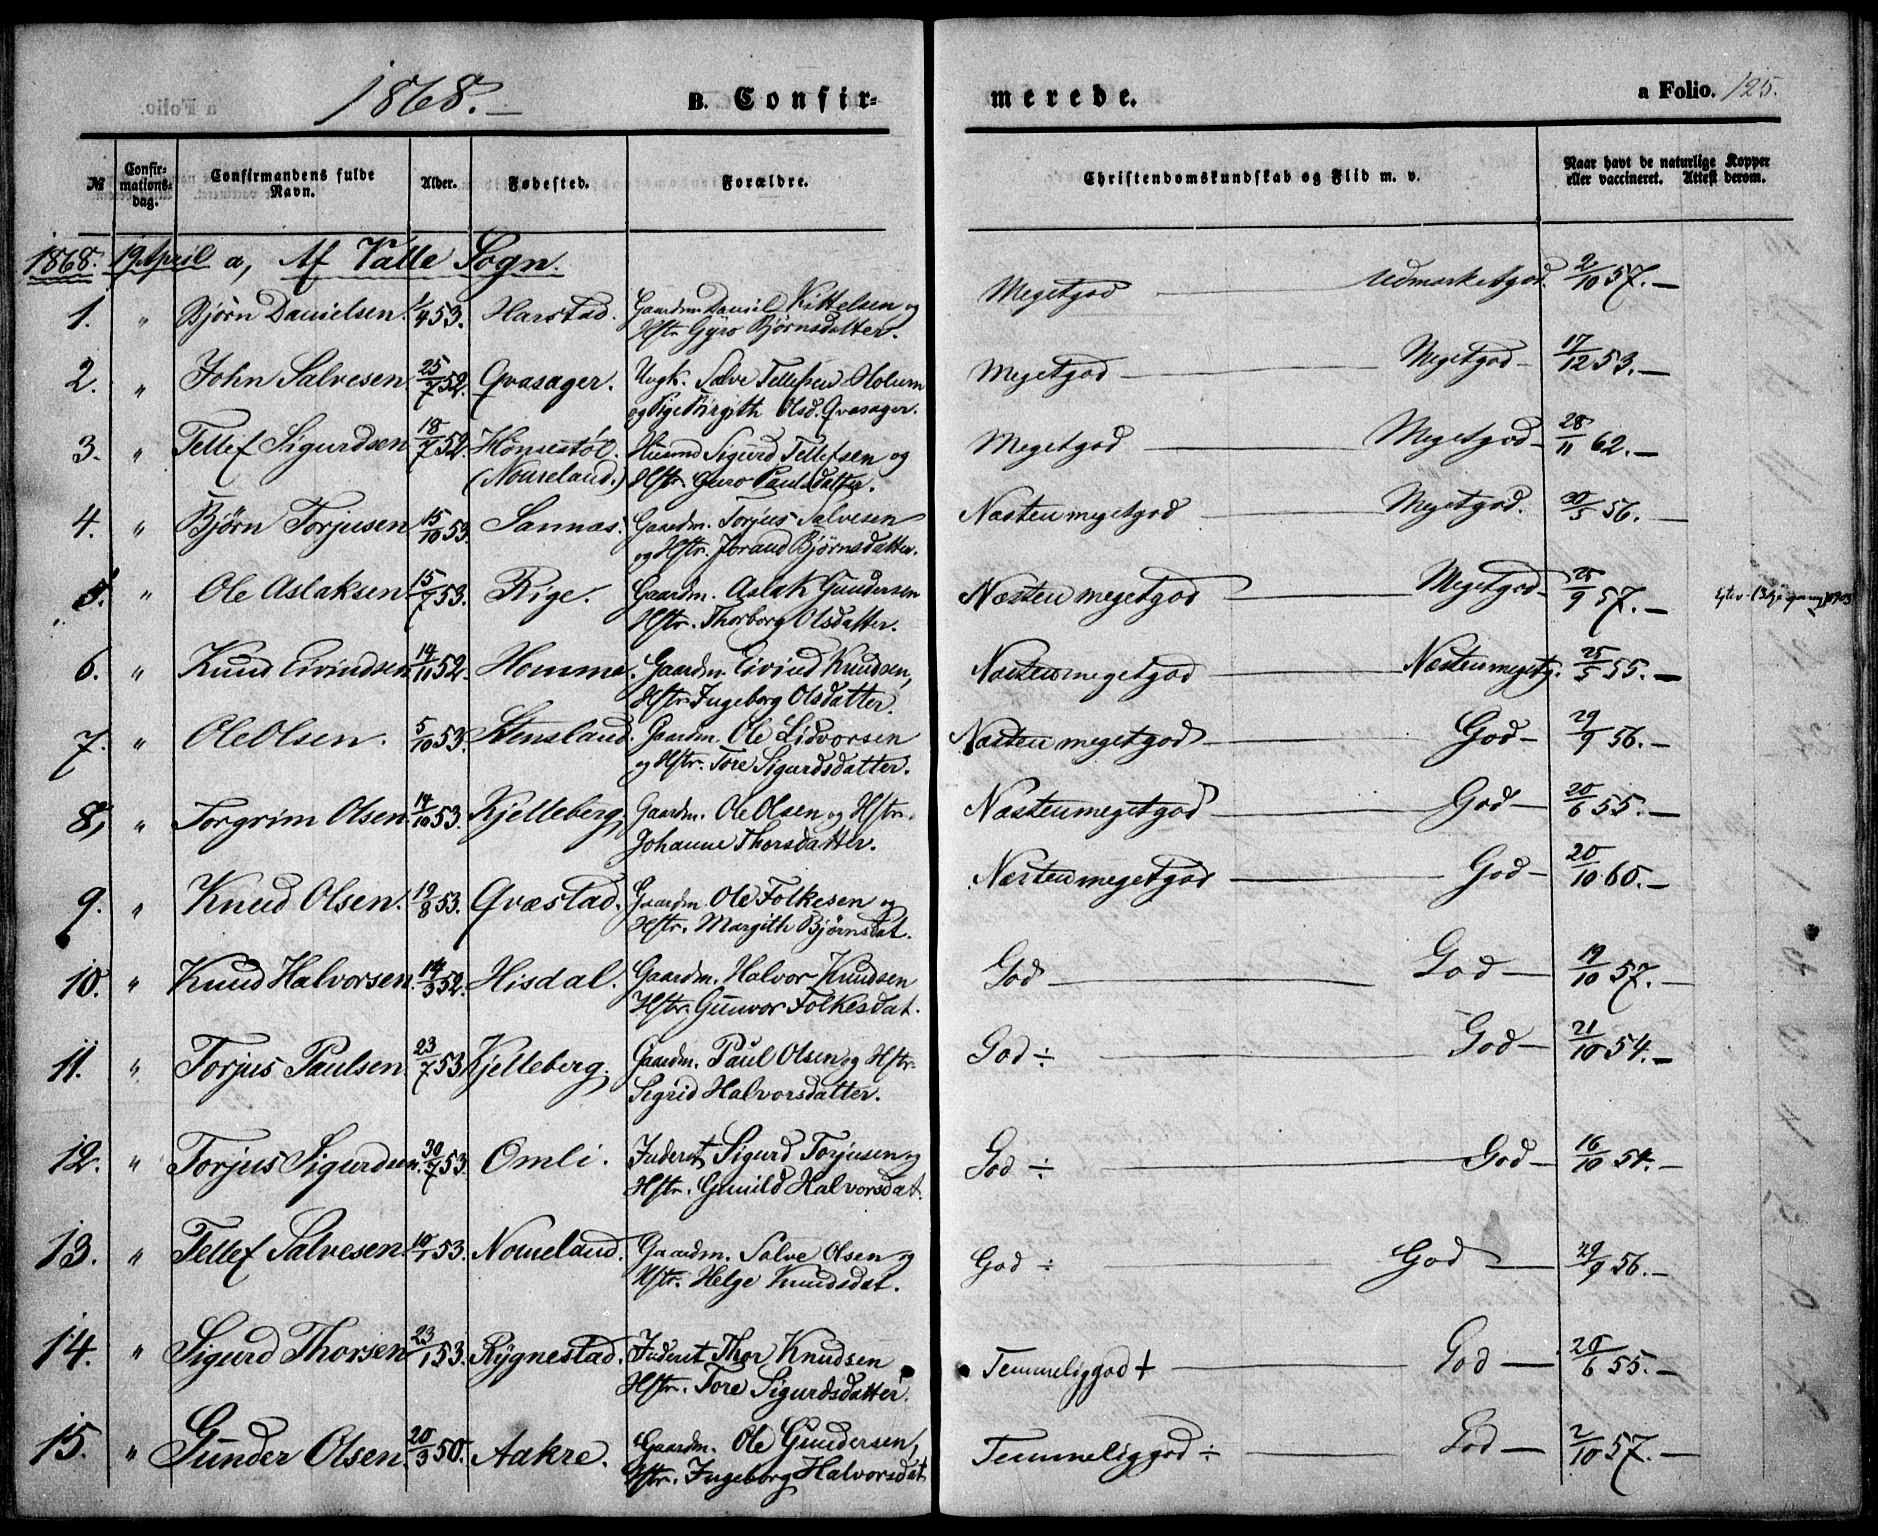 1868.— B. Confir- merede. a Folio. 125.
№ Confir-mations-dag. Confirmandens fulde Navn. Alder. Fødested. Forældre. Christendomskundskab og Flid m. v. Naar havt de naturlige Kopper eller vaccineret. Attest derom.
1868. 19 April a, Af Valle Sogn.
1. " Bjørn Danielsen. 1/4 53. Harstad. Gaardm. Daniel Kittelsen og Meget god — Udmærket god. 2/10 57.—
Hstr. Gyro Bjørnsdatter.
2. " John Salvesen 25/7 52. Qvasager. Ungk. Salve Tellefsen Holum Meget god — Meget god — 17/12 53.—
og Pige Birgith Olsd. Qvasager.
3. " Tellef Sigurdsen 18/7 52. Hönsestøl. Husmd Sigurd Tellefsen og Meget god — Meget god — 28/11 62.—
(Nomeland.) Hstr. Guro Paulsdatter.
4. " Bjørn Torjusen 15/10 53. Sannæs. Gaardm. Torjus Salvesen Næsten meget god — Meget god. 30/5 56.—
og Hstr. Jorand Bjørnsdatter.
5. " Ole Aslaksen 15/7 53. Rige. Gaardm. Aslak Gundersen Næsten meget god — Meget god — 25/9 57.—
Hstr. Thorborg Olsdatter.
6. " Knud Eivindsen 14/11 52. Homme. Gaardm. Eivind Knudsen, Næsten meget god — Næsten meget g. 25/5 55.—
Hstr. Ingeborg Olsdatter.
7. " Ole Olsen. 5/10 53. Stensland. Gaardm. Ole Lidvorsen Næsten meget god — God — 29/9 56.—
og Hstr. Tore Sigurdsdatter.
8, " Torgrim Olsen 14/10 53. Kjelleberg, Gaardm. Ole Olsen og Hstr. Næsten meget god — God — 20/6 55.—
Johanne Thorsdatter.
9. " Knud Olsen. 19/8 53. Qvæstad. Gaardm. Ole Folkesen og Næsten meget god — God — 20/10 60.—
Hstr. Margith Bjørnsdat.
10. " Knud Halvorsen. 14/3 52. Hisdal. Gaardm. Halvor Knudsen God — God — 19/10 57.—
Hstr. Gunvor Folkesdat.
11. " Torjus Paulsen 23/7 53 Kjelleberg. Gaardm. Paul Olsen og Hstr. God ÷ — God — 21/10 54.—
Sigrid Halvorsdatter.
12. " Torjus Sigurdsen. 30/7 53. Omli. Inderst Sigurd Torjusen og God ÷ — God — 16/10 54.—
Hstr. Gunild Halvorsdat.
13. " Tellef Salvesen. 10/1 53. Nomeland. Gaardm. Salve Olsen og God ÷ — God — 29/9 56.—
Hstr. Helge Knudsdat.
14. " Sigurd Thorsen 23/1 53. Rygnestad. Inderst Thor Knudsen Temmelig god + — God — 20/6 55.—
Hstr. Tore Sigurdsdatter.
15. " Gunder Olsen. 20/3 50. Aakre. Gaardm. Ole Gundersen, Temmelig god ÷ — God — 2/10 57.—
Hstr. Ingeborg Halvorsdat